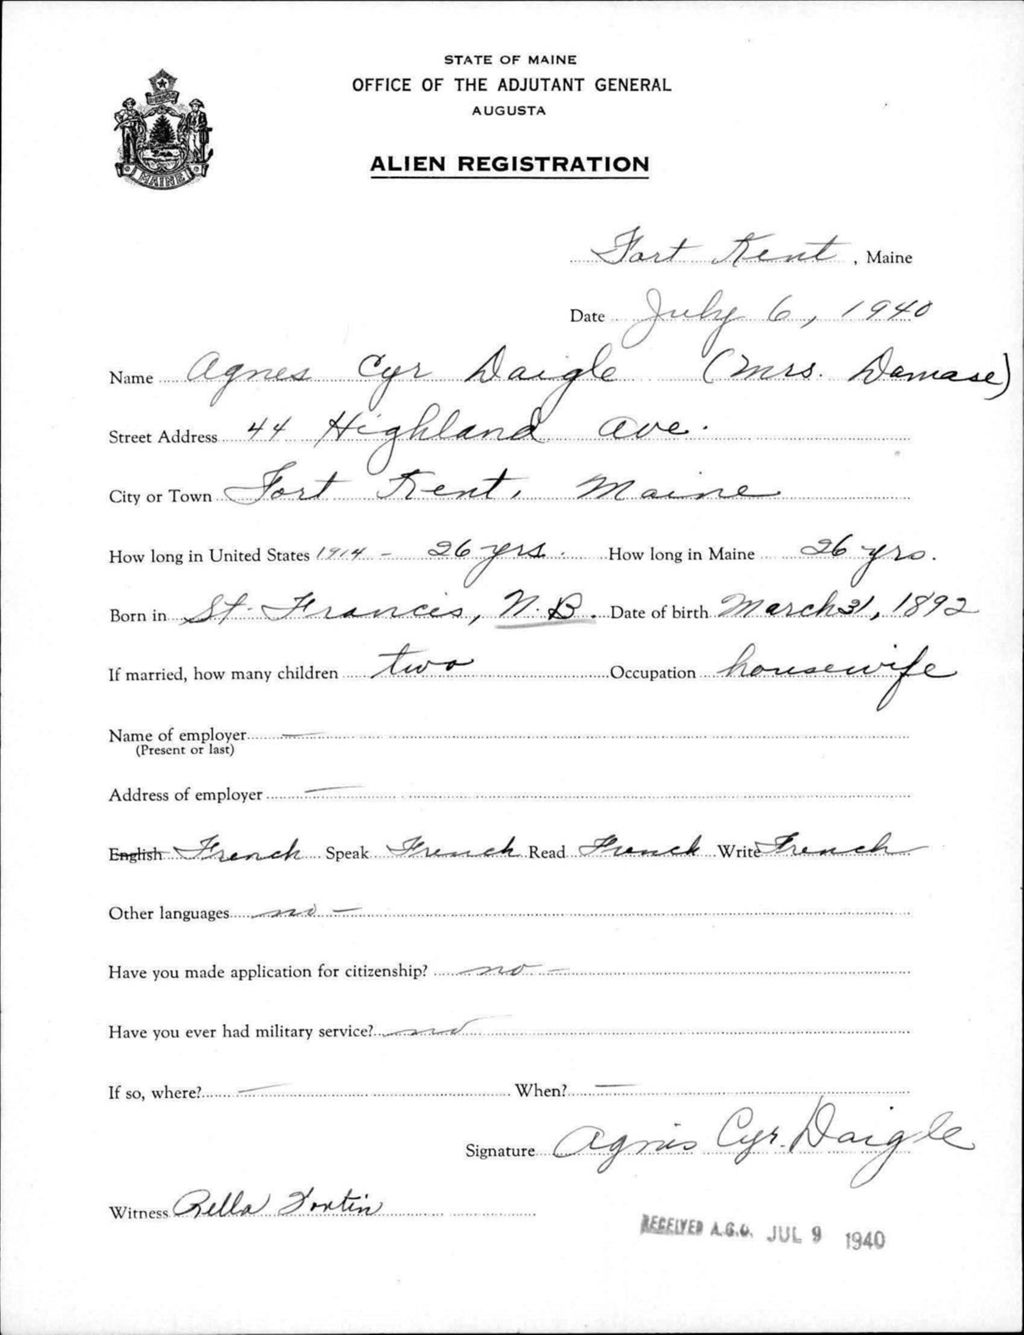 STATE OF MAINE
OFFICE OF THE ADJUTANT GENERAL
AUGUSTA
ALIEN REGISTRATION
MAINE
Fort Kent, Maine
Date July 6, 1940
Name Agnes Cyr Daigle (Mrs. Damase)
Street Address 44 Highland Ave.
City or Town Fort Kent, Maine
How long in United States 1914 - 26 yrs. How long in Maine 26 yrs.
Born in St. Francis, N.B. Date of birth March 31, 1892
If married, how many children two Occupation housewife
Name of employer —
(Present or last)
Address of employer —
English French Speak French Read French Write French
Other languages no —
Have you made application for citizenship? no —
Have you ever had military service? no
If so, where? — When? —
Signature Agnis Cyr Daigle
Witness Rella Fortin
RECEIVED A.G.O. JUL 9 1940